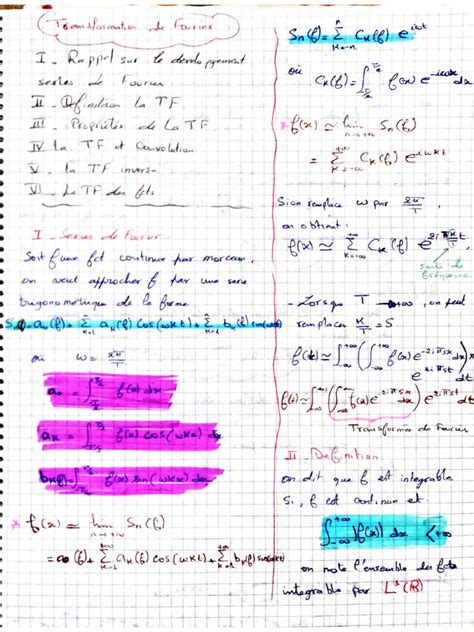 Transformation de Fourier
I _ Rappel sur le developpement
series de Fourier
II _ Definition La TF.
III _ Propriétés de La TF
IV La TF et Convolution
V _ La TF invers
VI _ La TF des fcts
I _ Series de Fourier.
Soit f une fct continue par morceau,
on veut approcher f par une serie
trigonometrique de la forme.
a₀(f)+ Σ aₖ(f) cos(ωkt)+ Σ bₖ(f) sin(ωkt)
où ω = 2π/T
a₀ = ∫ f(x) dx
aₖ = ∫ f(x) cos(ωkx) dx
bₖ(f)= ∫ f(x) sin(ωkx) dx
* f(x) ≃ lim Sn(f)
n→+∞
= a₀(f)+ Σ aₖ(f) cos(ωkt)+ Σ bₖ(f) sin(ωkt)
Sn(f)= Σ Cₖ(f) e^{iωkt}
où
Cₖ(f)= ∫ f(x) e^{-iωkx} dx
* f(x) ≃ lim Sn(f)
n→+∞
= Σ Cₖ(f) e^{iωkt}
Si on remplace ω par 2π/T
on obtient:
f(x) ≃ Σ Cₖ(f) e^{2iπ k/T t}
_ Lorsque T → +∞, on peut
remplacer k/T = S
f(t) ≃ ∫ (∫ f(x) e^{-2iπsx} dx) e^{2iπst} dt
f(t) ≃ ∫ (∫ f(x) e^{-2iπsx} dx) e^{2iπst} dt
Transformée de Fourier
II _ Definition
on dit que f est integrable
Si, f est continue et
∫_{-∞}^{+∞} |f(x)| dx < +∞
on note l'ensemble des fcts
integrable par L¹(ℝ)